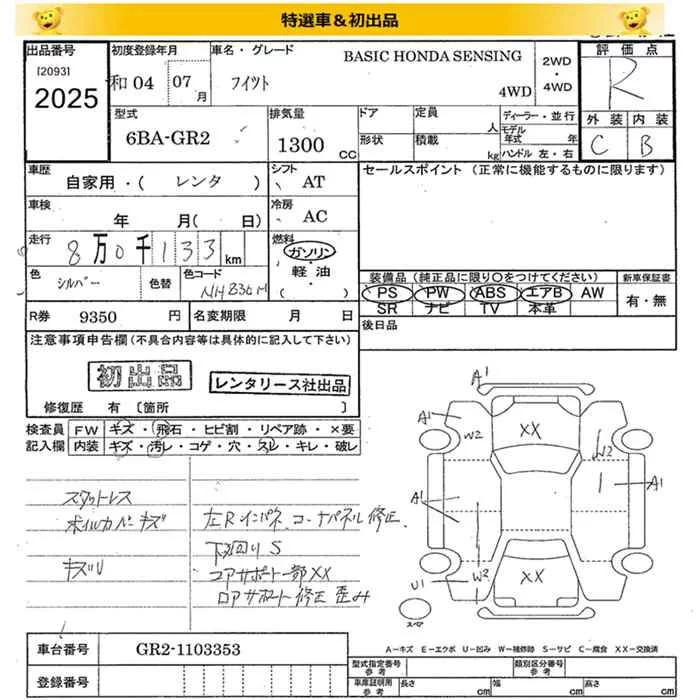 特選車＆初出品
出品番号
[2093]
2025
初度登録年月
和04 07月
車名・グレード
BASIC HONDA SENSING
フィット
4WD
2WD
・
4WD
評価点
R
外装 内装
C B
型式
6BA-GR2
排気量
1300 CC
ドア
形状
定員
人
積載
kg
ディーラー・並行
モデル年式 年
ハンドル 左・右
車歴
自家用・( レンタ )
シフト
AT
車検
年 月( 日)
冷房
AC
走行
8万0千133 km
燃料
ガソリン
軽・油
( )
色
シルバー
色替
色コード
NH830M
R券 9350 円
名変期限 月 日
セールスポイント (正常に機能するものに限ります)
装備品 (純正品に限り○をつけてください)
PS PW ABS エアB AW
SR ナビ TV 本革
新車保証書
有・無
後日品
注意事項申告欄(不具合内容等は具体的に記入して下さい)
初出品
レンタリース社出品
修復歴 有 [箇所 ]
検査員
記入欄
FW キズ・飛石・ヒビ割・リペア跡・×要
内装 キズ・汚レ・コゲ・穴・スレ・キレ・破レ
スタットレス
ホイルカバーキズ
キズU
左Rインパネ、コーナパネル修正
下回りS
コアサポート一部XX
ロアサポート修正 歪み
A1
A1
W2
XX
W2
A1
A1
U1
W2
XX
スペア
A－キズ E－エクボ U－凹み W－補修跡 S－サビ C－腐食 XX－交換済
車台番号
GR2-1103353
登録番号
型式指定番号
参考
類別区分番号
参考
車庫証明用
参考
長さ cm 幅 cm 高さ cm